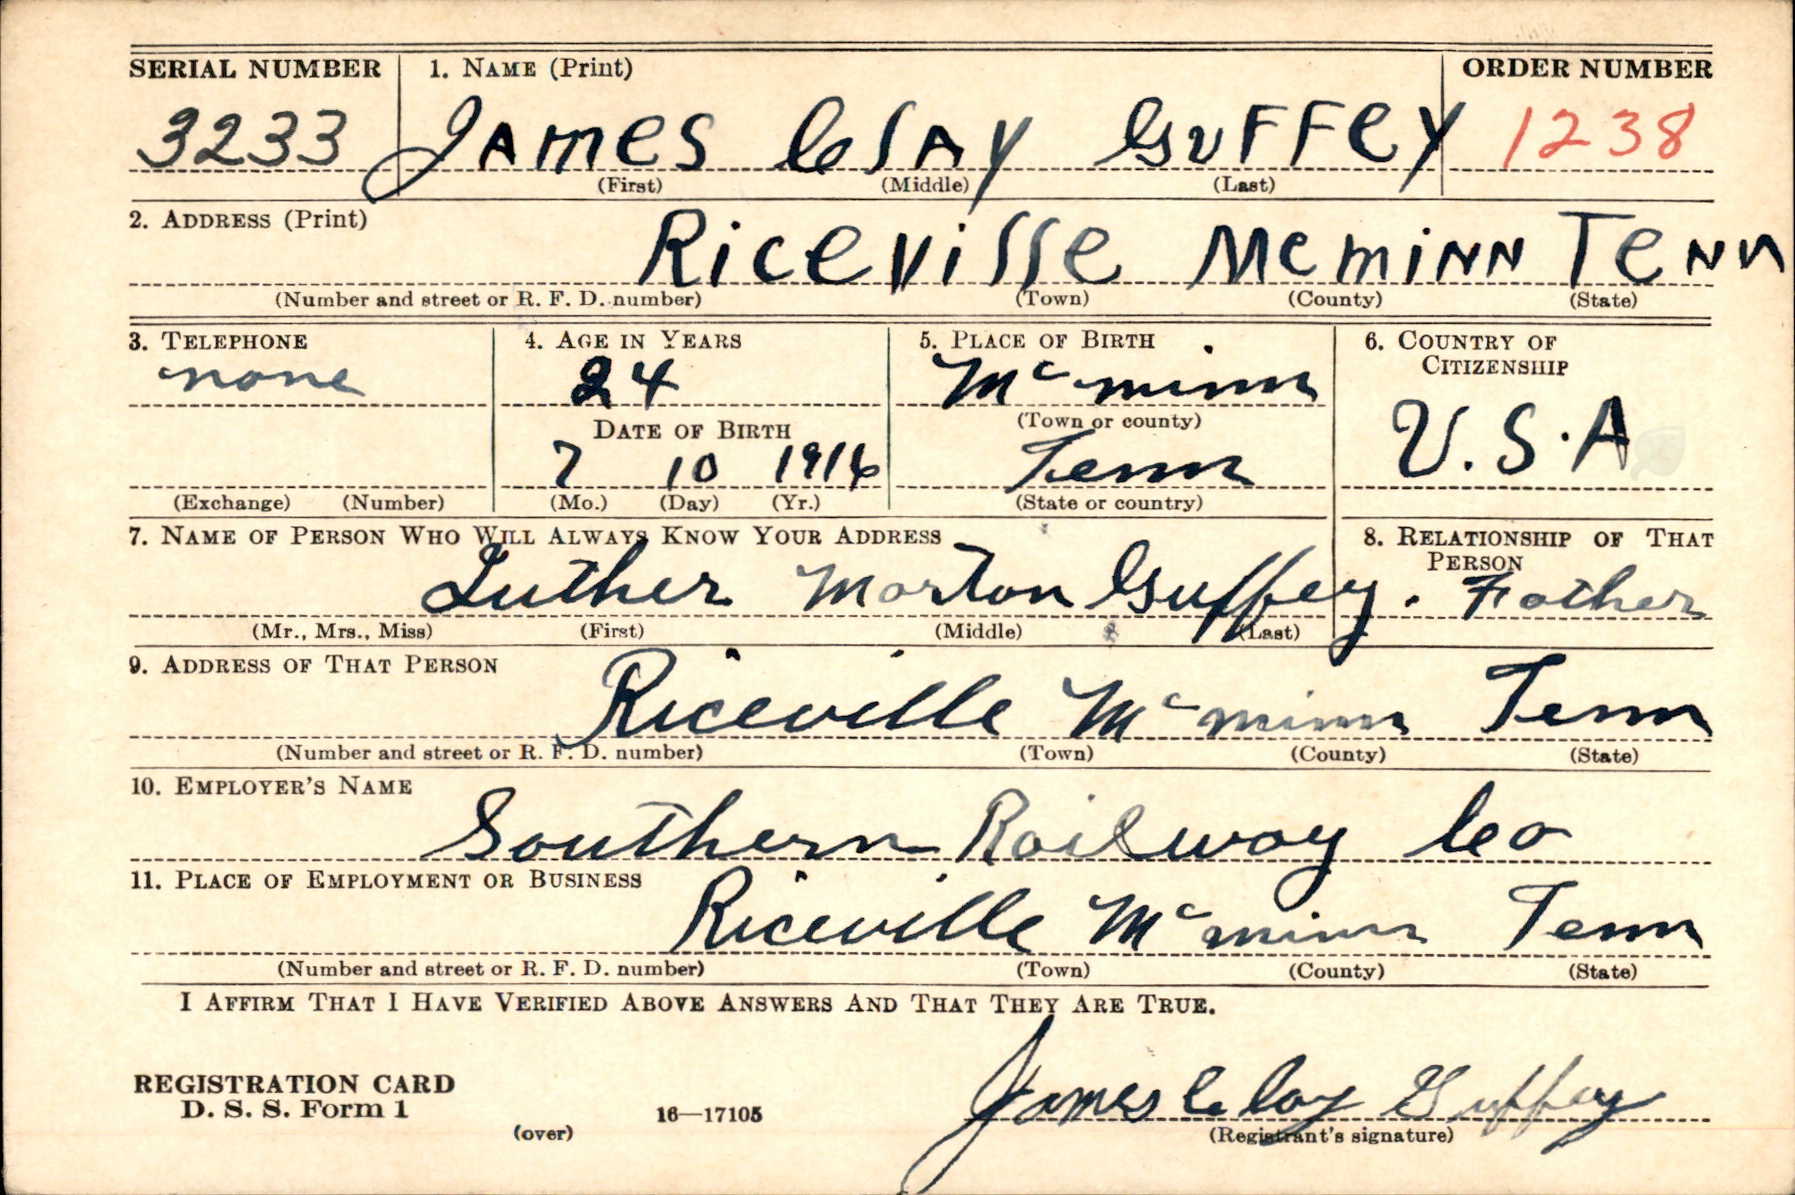 SERIAL NUMBER 1. NAME (Print) ORDER NUMBER
3233 JAMES ClAY GUFFEY 1238
(First) (Middle) (Last)
2. ADDRESS (Print)
RiceVille McMiNN TeNN
(Number and street or R. F. D. number) (Town) (County) (State)
3. TELEPHONE 4. AGE IN YEARS 5. PLACE OF BIRTH 6. COUNTRY OF CITIZENSHIP
none 24 McMinn U.S.A
DATE OF BIRTH (Town or county)
7 10 1916 Tenn
(Exchange) (Number) (Mo.) (Day) (Yr.) (State or country)
7. NAME OF PERSON WHO WILL ALWAYS KNOW YOUR ADDRESS 8. RELATIONSHIP OF THAT PERSON
Luther Morton Guffey. Father
(Mr., Mrs., Miss) (First) (Middle) (Last)
9. ADDRESS OF THAT PERSON
Riceville McMinn Tenn
(Number and street or R. F. D. number) (Town) (County) (State)
10. EMPLOYER'S NAME
Southern Railway Co
11. PLACE OF EMPLOYMENT OR BUSINESS
Riceville McMinn Tenn
(Number and street or R. F. D. number) (Town) (County) (State)
I AFFIRM THAT I HAVE VERIFIED ABOVE ANSWERS AND THAT THEY ARE TRUE.
James Clay Guffey
REGISTRATION CARD
D. S. S. Form 1 16—17105
(over) (Registrant's signature)